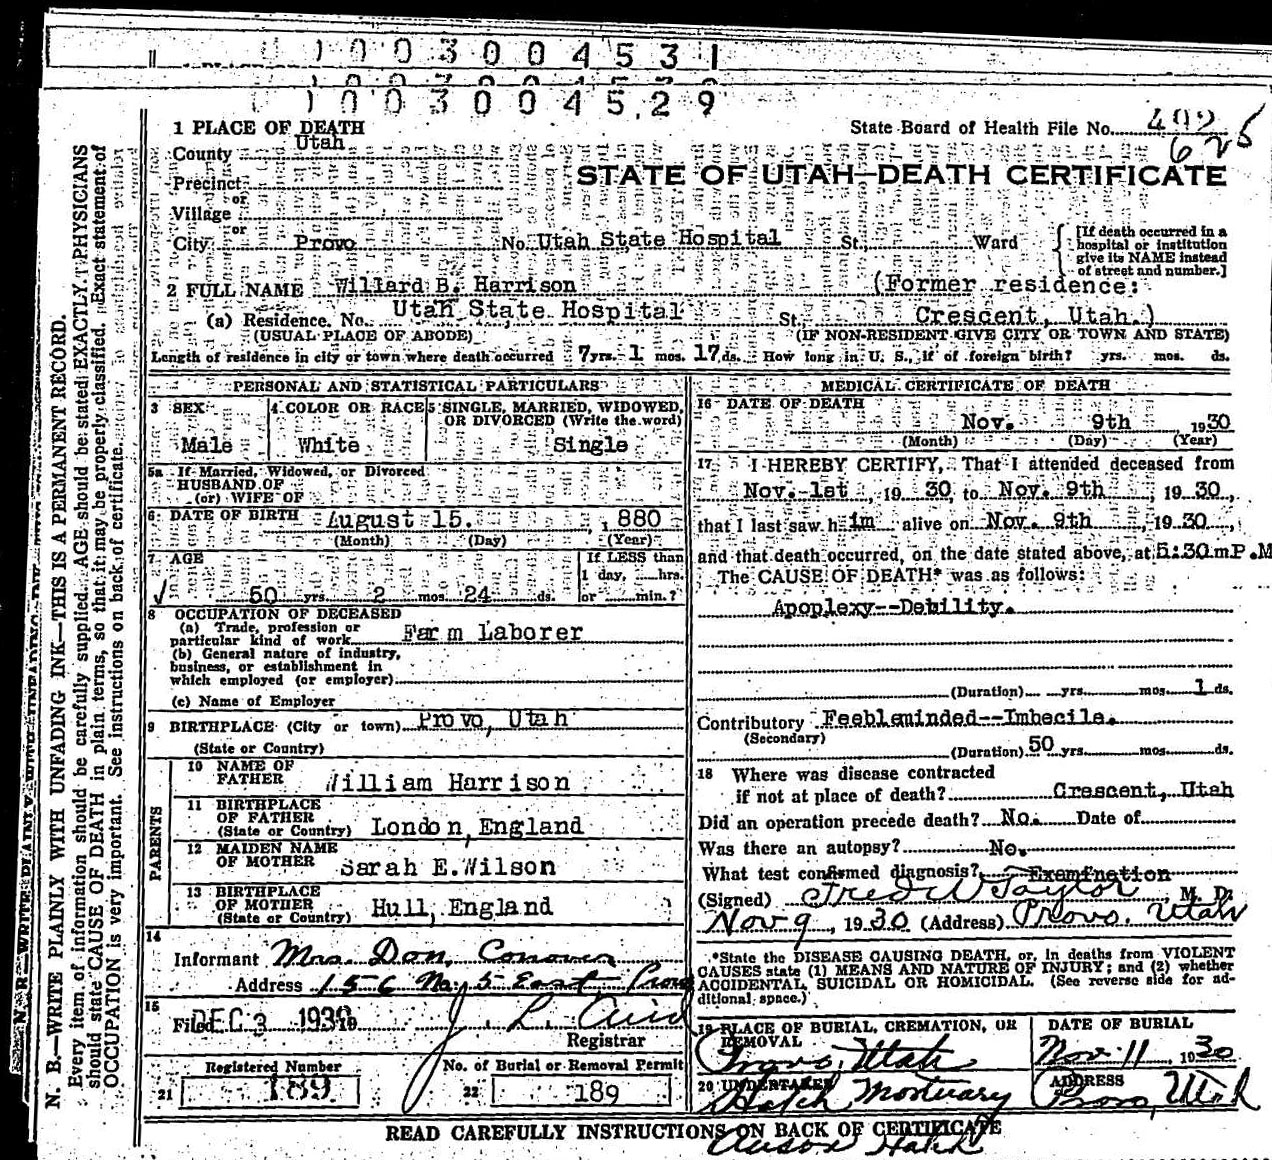 1003004531
1003004529
1 PLACE OF DEATH
State Board of Health File No. 625
County Utah
Precinct
or
STATE OF UTAH—DEATH CERTIFICATE
Village
or
City Provo No. Utah State Hospital St., Ward
[If death occurred in a hospital or institution give its NAME instead of street and number.]
2 FULL NAME Willard B. Harrison (Former residence:
(a) Residence. No. Utah State Hospital St. Crescent, Utah.)
(USUAL PLACE OF ABODE) (IF NON-RESIDENT GIVE CITY OR TOWN AND STATE)
Length of residence in city or town where death occurred 7 yrs. 1 mos. 17 ds. How long in U. S., if of foreign birth? yrs. mos. ds.
PERSONAL AND STATISTICAL PARTICULARS
3 SEX Male
4 COLOR OR RACE White
5 SINGLE, MARRIED, WIDOWED, OR DIVORCED (Write the word) Single
5a If Married, Widowed, or Divorced
HUSBAND OF
(or) WIFE OF
6 DATE OF BIRTH August 15. 1880
(Month) (Day) (Year)
7 AGE
50 yrs. 2 mos. 24 ds.
If LESS than
1 day, hrs.
or min.?
8 OCCUPATION OF DECEASED
(a) Trade, profession or
particular kind of work Farm Laborer
(b) General nature of industry,
business, or establishment in
which employed (or employer)
(c) Name of Employer
9 BIRTHPLACE (City or town) Provo, Utah
(State or Country)
PARENTS
10 NAME OF FATHER William Harrison
11 BIRTHPLACE OF FATHER (State or Country) London, England
12 MAIDEN NAME OF MOTHER Sarah E. Wilson
13 BIRTHPLACE OF MOTHER (State or Country) Hull, England
14
Informant Mrs. Don. Conover
Address 156 No. 5 East Provo
15
Filed DEC 3 1930 J. L.
Registrar
Registered Number
21 189
No. of Burial or Removal Permit
22 189
MEDICAL CERTIFICATE OF DEATH
16 DATE OF DEATH
Nov. 9th 1930
(Month) (Day) (Year)
17 I HEREBY CERTIFY, That I attended deceased from
Nov. 1st, 1930, to Nov. 9th, 1930,
that I last saw him alive on Nov. 9th, 1930,
and that death occurred, on the date stated above, at 5:30 m P.M
The CAUSE OF DEATH* was as follows:
Apoplexy--Debility.
(Duration) yrs. mos. 1 ds.
Contributory Feebleminded--Imbecile.
(Secondary)
(Duration) 50 yrs. mos. ds.
18 Where was disease contracted
if not at place of death? Crescent, Utah
Did an operation precede death? No. Date of
Was there an autopsy? No.
What test confirmed diagnosis? Examination
(Signed) Fred W Taylor M. D.
Nov 9, 1930 (Address) Provo, Utah
*State the DISEASE CAUSING DEATH, or, in deaths from VIOLENT
CAUSES state (1) MEANS AND NATURE OF INJURY; and (2) whether
ACCIDENTAL, SUICIDAL OR HOMICIDAL. (See reverse side for ad-
ditional space.)
19 PLACE OF BURIAL, CREMATION, OR REMOVAL
Provo, Utah
DATE OF BURIAL
Nov 11, 1930
20 UNDERTAKER
Hatch Mortuary
ADDRESS
Provo, Utah
READ CAREFULLY INSTRUCTIONS ON BACK OF CERTIFICATE
Hatch
N. B.—WRITE PLAINLY WITH UNFADING INK—THIS IS A PERMANENT RECORD.
Every item of information should be carefully supplied. AGE should be stated EXACTLY. PHYSICIANS
should state CAUSE OF DEATH in plain terms, so that it may be properly classified. Exact statement of
OCCUPATION is very important. See instructions on back of certificate.